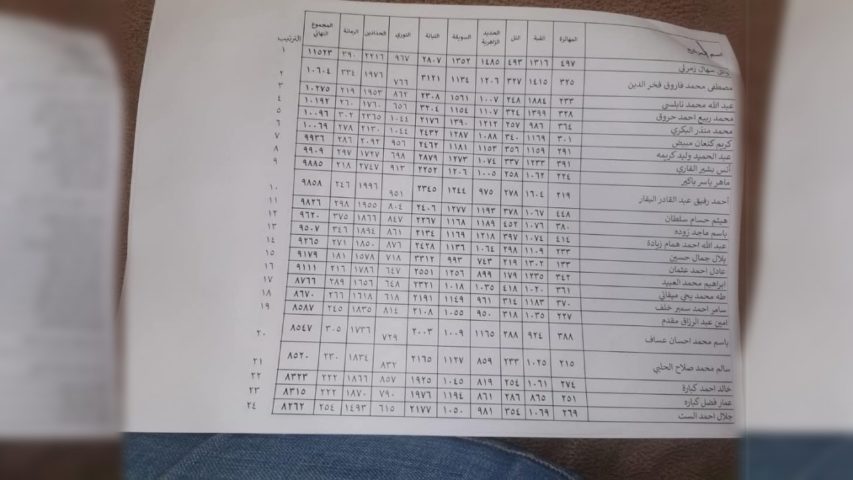 اسم المرشح المهاترة القبة التل الحديد الزاهرية السويقة التبانة النوري الحدادين الرمانة المجموع النهائي الترتيب
٤٩٧ ١٣١٦ ٤٩٣ ١٤٨٥ ١٣٥٢ ٢٨٠٧ ٩٦٧ ٢٢١٦ ٣٩٠ ١١٥٢٣ ١
مصطفى محمد فاروق فخر الدين ٣٢٥ ١٤١٥ ٣٢٧ ١٢٠٦ ١١٣٤ ٣١٢١ ٧٦٦ ١٩٧٦ ٣٣٤ ١٠٦٠٤ ٢
عبد الله محمد نابلسي ٢٣٣ ١٨٨٤ ٢٤٨ ١٠٠٧ ١٥٦١ ٢٣٠٨ ٨٦٢ ١٩٥٣ ٢١٩ ١٠٢٧٥ ٣
محمد ربيع احمد حروق ٣٢٨ ١٣٩٩ ٣٢٤ ١١٠٧ ١١٥٤ ٣٢٠٤ ٦٥٦ ١٧٦٠ ٢٦٠ ١٠١٩٢ ٤
محمد منذر البكري ٣٦٤ ٩٨٦ ٢٥٧ ١٢١٢ ١٣٩٠ ٢١٧٦ ١٠٤٤ ٢٣٦٥ ٣٠٢ ١٠٠٩٦ ٥
كريم كنعان مبيض ٣٠١ ١١٦٩ ٣٤٠ ١٠٨٨ ١٢٨٧ ٢٤٣٢ ١٠٤٤ ٢١٣٠ ٢٧٨ ١٠٠٦٩ ٦
عبد الحميد وليد كريمه ٢٩١ ١١٥٩ ٣٥٦ ١١٨١ ١١٥٣ ٢٤٦٢ ٩٥٦ ٢٠٩٢ ٢٨٦ ٩٩٣٦ ٧
أنس بشير القاري ٣٩١ ١٢٣٣ ٣٣٧ ١٠٧٤ ١٢٧٣ ٢٨٧٩ ٦٩٨ ١٧٢٧ ٢٩٧ ٩٩٠٩ ٨
ماهر ياسر باكير ٢٢٤ ١٠٦٢ ٢٥٨ ١٠٠٥ ١٢٠٦ ٢٢٥٢ ٩١٣ ٢٧٤٧ ٢١٨ ٩٨٨٥ ٩
أحمد رفيق عبد القادر البقار ٢١٩ ١٦٠٤ ٢٧٨ ٩٧٥ ١٢٤٤ ٢٣٤٥ ٩٥١ ١٩٩٦ ٢٤٦ ٩٨٥٨ ١٠
هيثم حسام سلطان ٤٤٨ ١٠٦٧ ٣٧٨ ١١٩٣ ١٢٧٧ ٢٤٠٦ ٨٠٤ ١٩٥٥ ٢٩٨ ٩٨٢٦ ١١
باسم ماجد زوده ٣٨٠ ١٠٧٦ ٤٥٢ ١١٨٩ ١١٦٨ ٢٢٦٧ ٨٤٧ ١٨٦٦ ٣٧٥ ٩٦٢٠ ١٢
عبد الله احمد همام زيادة ٤١٤ ١٠٧٤ ٣٩٧ ١٢١٨ ١١٦٩ ٢١٣٤ ٨٦١ ١٨٩٤ ٣٤٦ ٩٥٠٧ ١٣
بلال جمال حسين ٢٣٣ ١١٠٩ ٢٩٨ ١٠٦٤ ١١٣٦ ٢٤٢٨ ٨٧٦ ١٨٥٠ ٢٧١ ٩٢٦٥ ١٤
عادل احمد عثمان ١٣٣ ١٣٠٢ ٢١٩ ٧٤٣ ٩٩٣ ٣٣١٢ ٧١٨ ١٥٧٨ ١٨١ ٩١٧٩ ١٥
ابراهيم محمد العبيد ٣٤٢ ١٢٣٥ ١٧٩ ٨٩٩ ١٢٥٦ ٢٥٥١ ٦٤٧ ١٧٨٦ ٢١٦ ٩١١١ ١٦
طه محمد يحي ميقاتي ٣٦١ ١٠٢٠ ٤١٨ ١٠٣٥ ١٠١٨ ٢٣٢١ ٦٤٨ ١٦٥٦ ٢٨٩ ٨٧٦٦ ١٧
سامر احمد سمير خلف ٣٧٠ ١١٨٣ ٣١٤ ٩٦١ ١١٤٩ ٢١٩١ ٦١٨ ١٦١٨ ٢٦٦ ٨٦٧٠ ١٨
امين عبد الرزاق مقدم ٢٢٧ ١٠٣٥ ٣١٨ ٩٥٠ ١٠٥٥ ٢١٠٨ ٨١٤ ١٨٣٥ ٢٤٥ ٨٥٨٧ ١٩
باسم محمد احسان عساف ٣٨٨ ٩٢٤ ٢٨٨ ١١٦٥ ١٠٠٩ ٢٠٠٣ ٧٢٩ ١٧٣٦ ٣٠٥ ٨٥٤٧ ٢٠
سالم محمد صلاح الحلبي ٢١٥ ١٠٢٥ ٢٣٣ ٨٥٩ ١١٢٧ ٢١٦٥ ٨٣٢ ١٨٣٤ ٢٣٠ ٨٥٢٠ ٢١
خالد احمد كبارة ٢٧٤ ١٠٦١ ٢٥٤ ٨١٩ ١٠٤٥ ١٩٢٥ ٨٥٧ ١٨٦٦ ٢٢٢ ٨٣٢٣ ٢٢
عمار فضل كباره ٢٥١ ٨٦٥ ٢٨٦ ٨٦١ ١١٩٤ ١٩٧٦ ٧٩٠ ١٨٧٠ ٢٢٢ ٨٣١٥ ٢٣
جلال احمد الست ٢٦٩ ١٠٦٩ ٣٥٤ ٩٨١ ١٠٥٠ ٢١٧٧ ٦١٥ ١٤٩٣ ٢٥٤ ٨٢٦٢ ٢٤